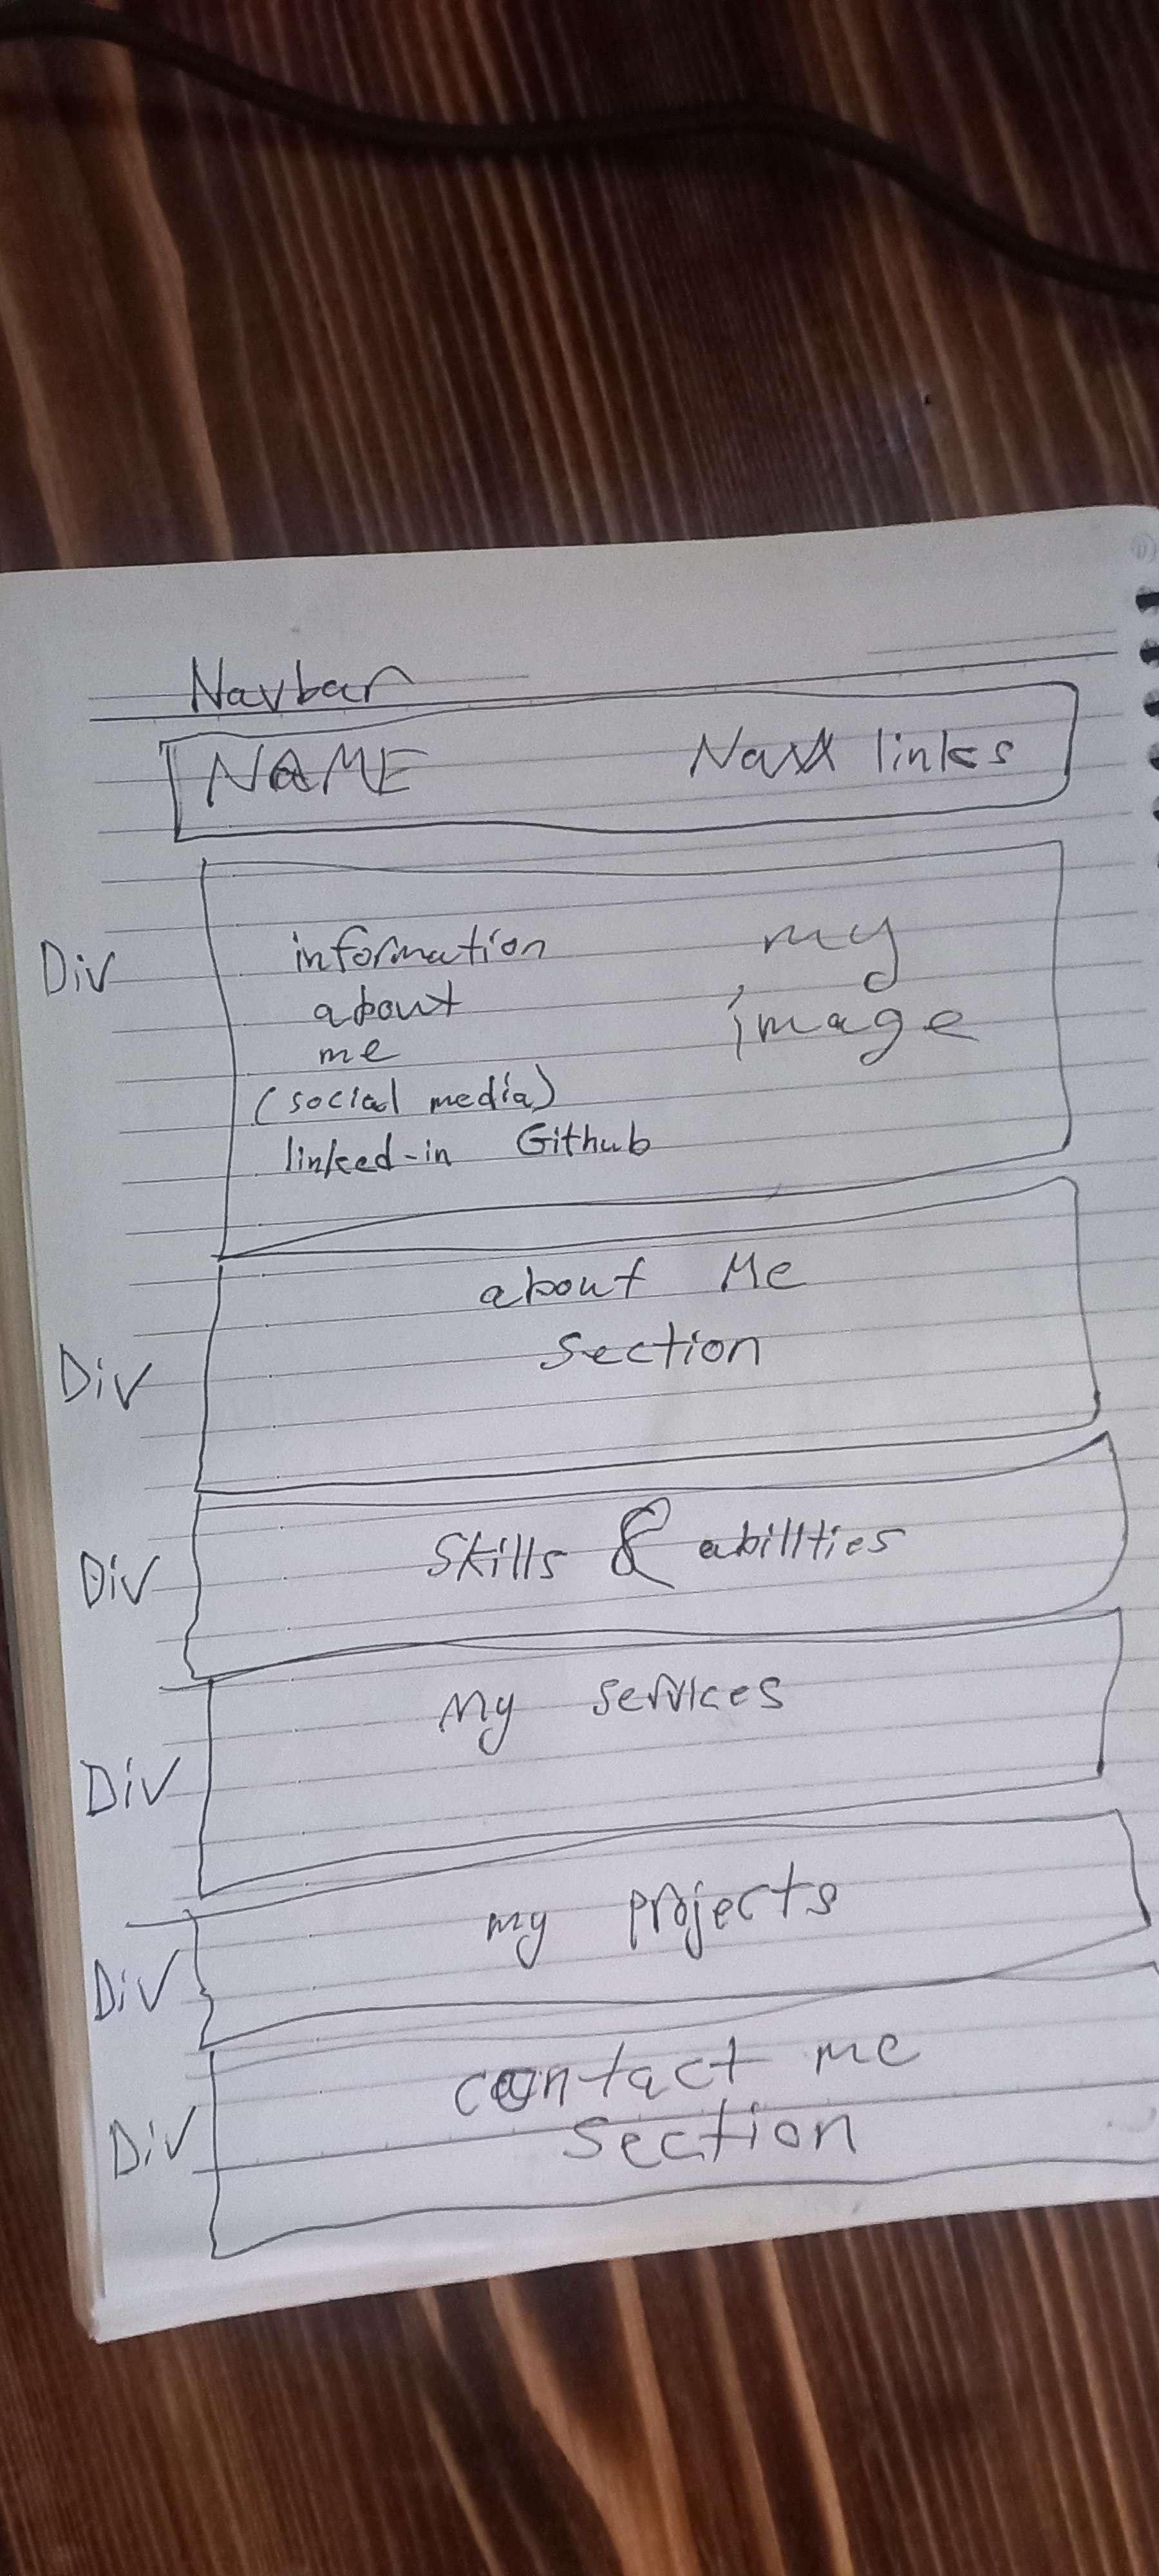 Navbar
NAME Nav links
Div
information
about
me
(social media)
linked-in Github
my
image
Div
about Me
section
Div
Skills & abillties
Div
My services
Div
my projects
Div
contact me
section